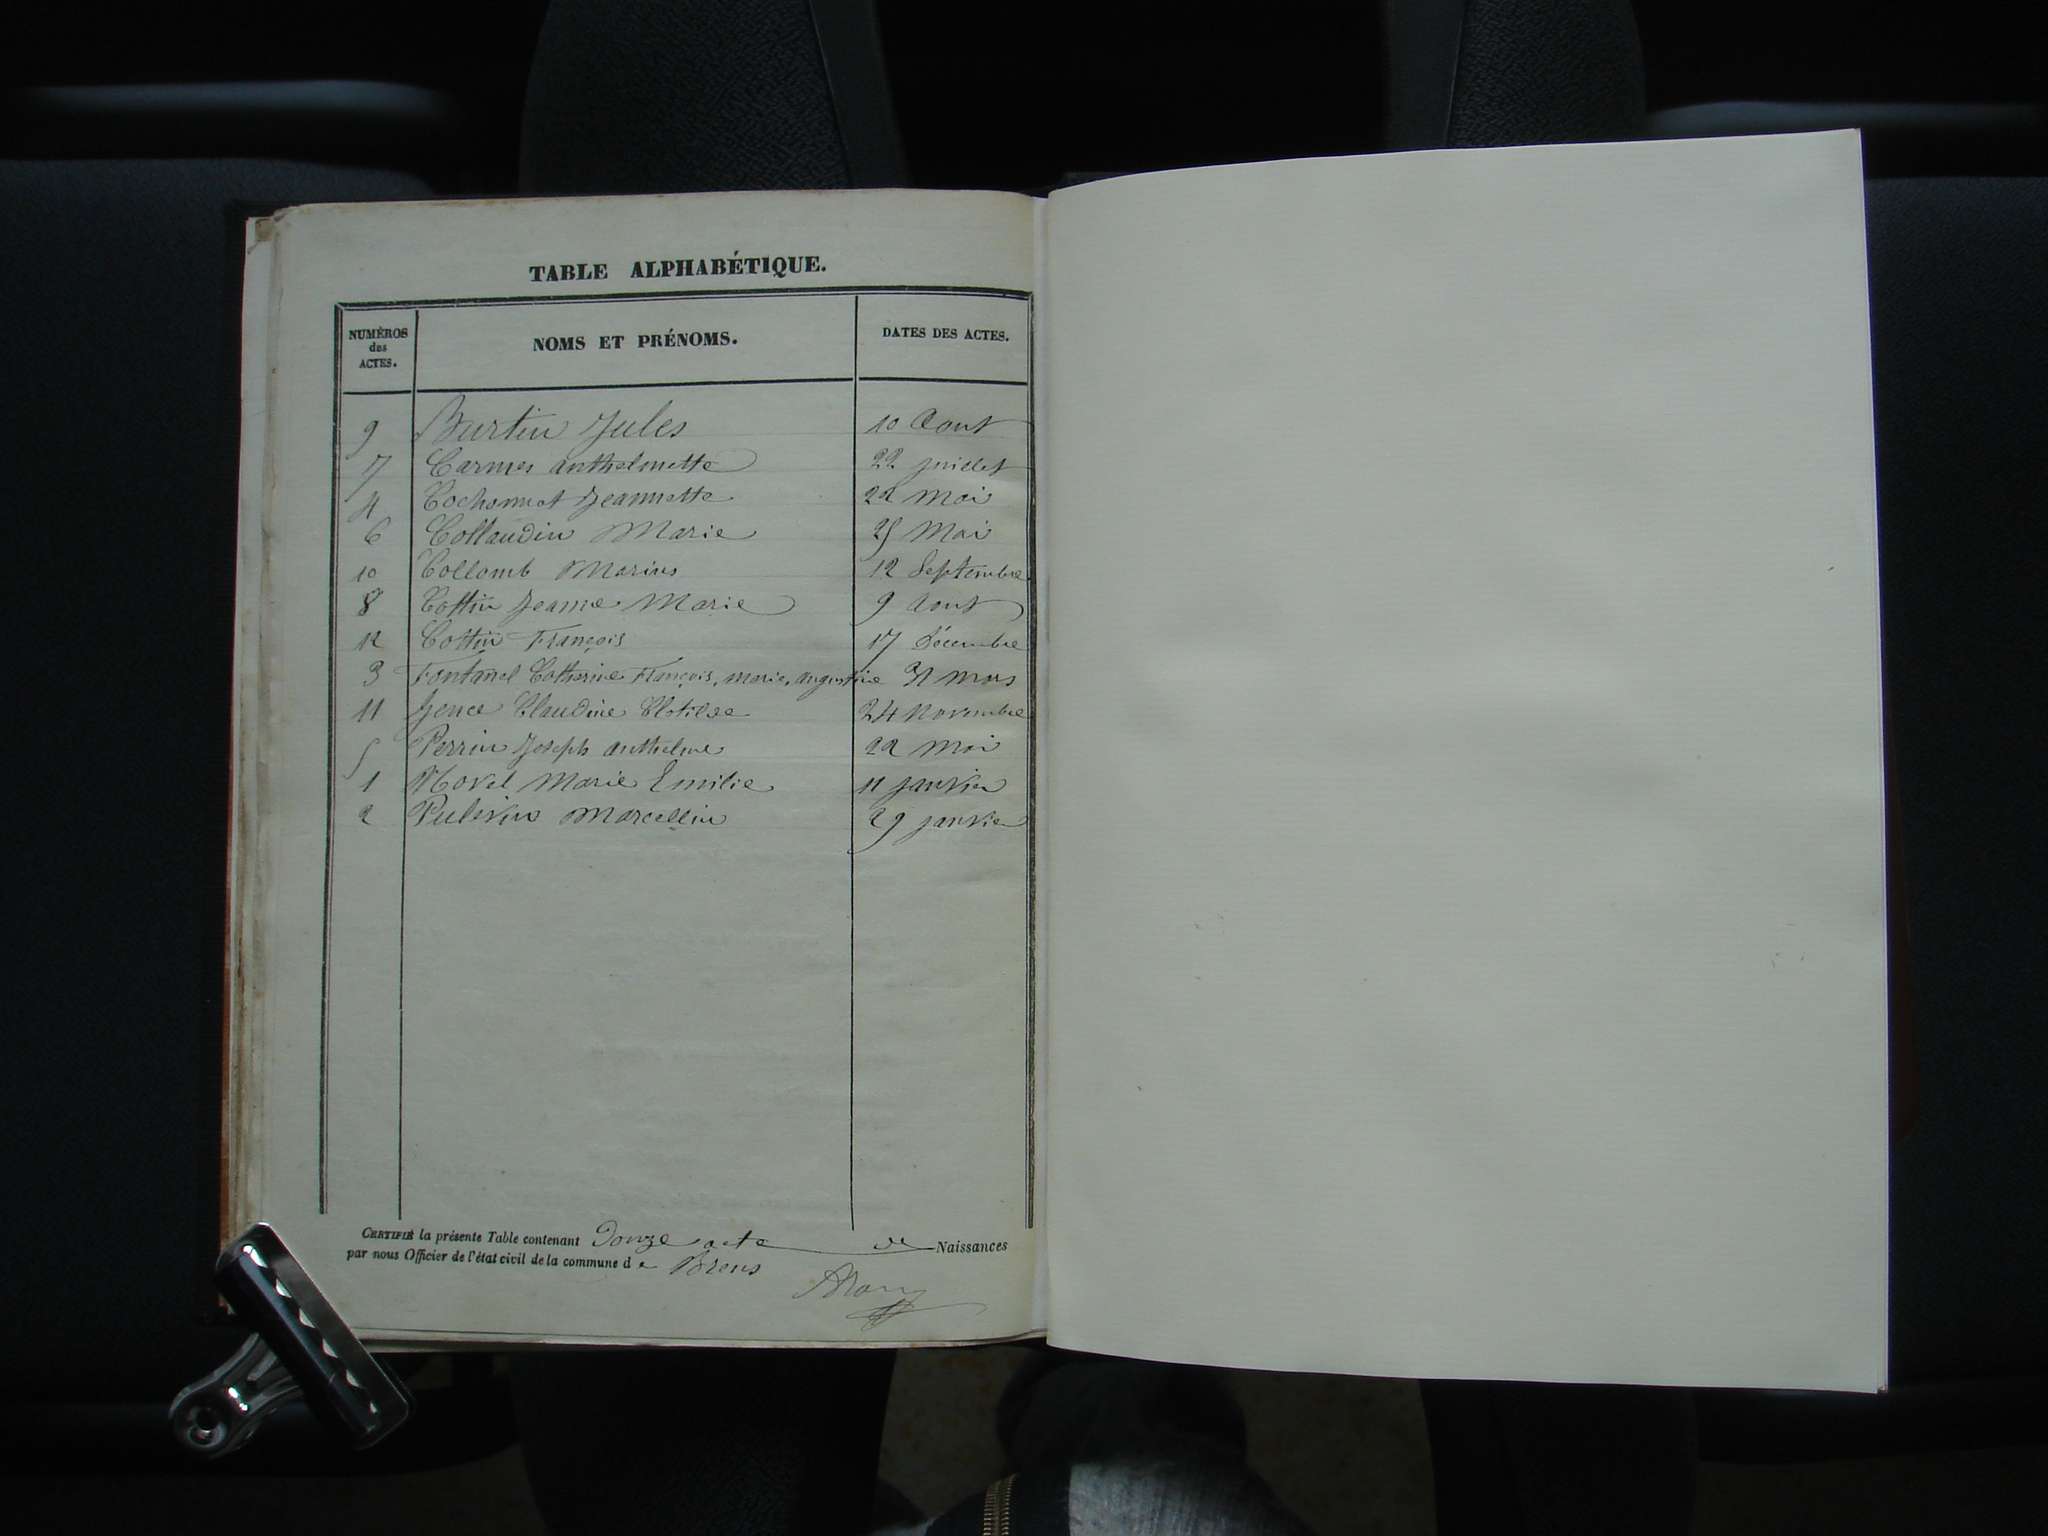 TABLE ALPHABÉTIQUE.
NUMÉROS des ACTES. NOMS ET PRÉNOMS. DATES DES ACTES.
9 Burtin Jules 10 Aout
7 Carmes anthelmette 22 juillet
4 Cochonnat Jeannette 22 Mai
6 Collaudin Marie 25 Mai
10 Collomb Marius 12 Septembre
8 Cottin Jeanne Marie 9 Aout
12 Cottin François 17 Décembre
3 Fontanel Catherine François, marie, augustine 31 mars
11 Jence Claudine Clotilde 24 Novembre
5 Perrin Joseph anthelme 22 Mai
1 Novel Marie Emilie 11 janvier
2 Pulivin Marcellin 29 janvier
CERTIFIÉ la présente Table contenant Douze acte de Naissances
par nous Officier de l'état civil de la commune de Brens